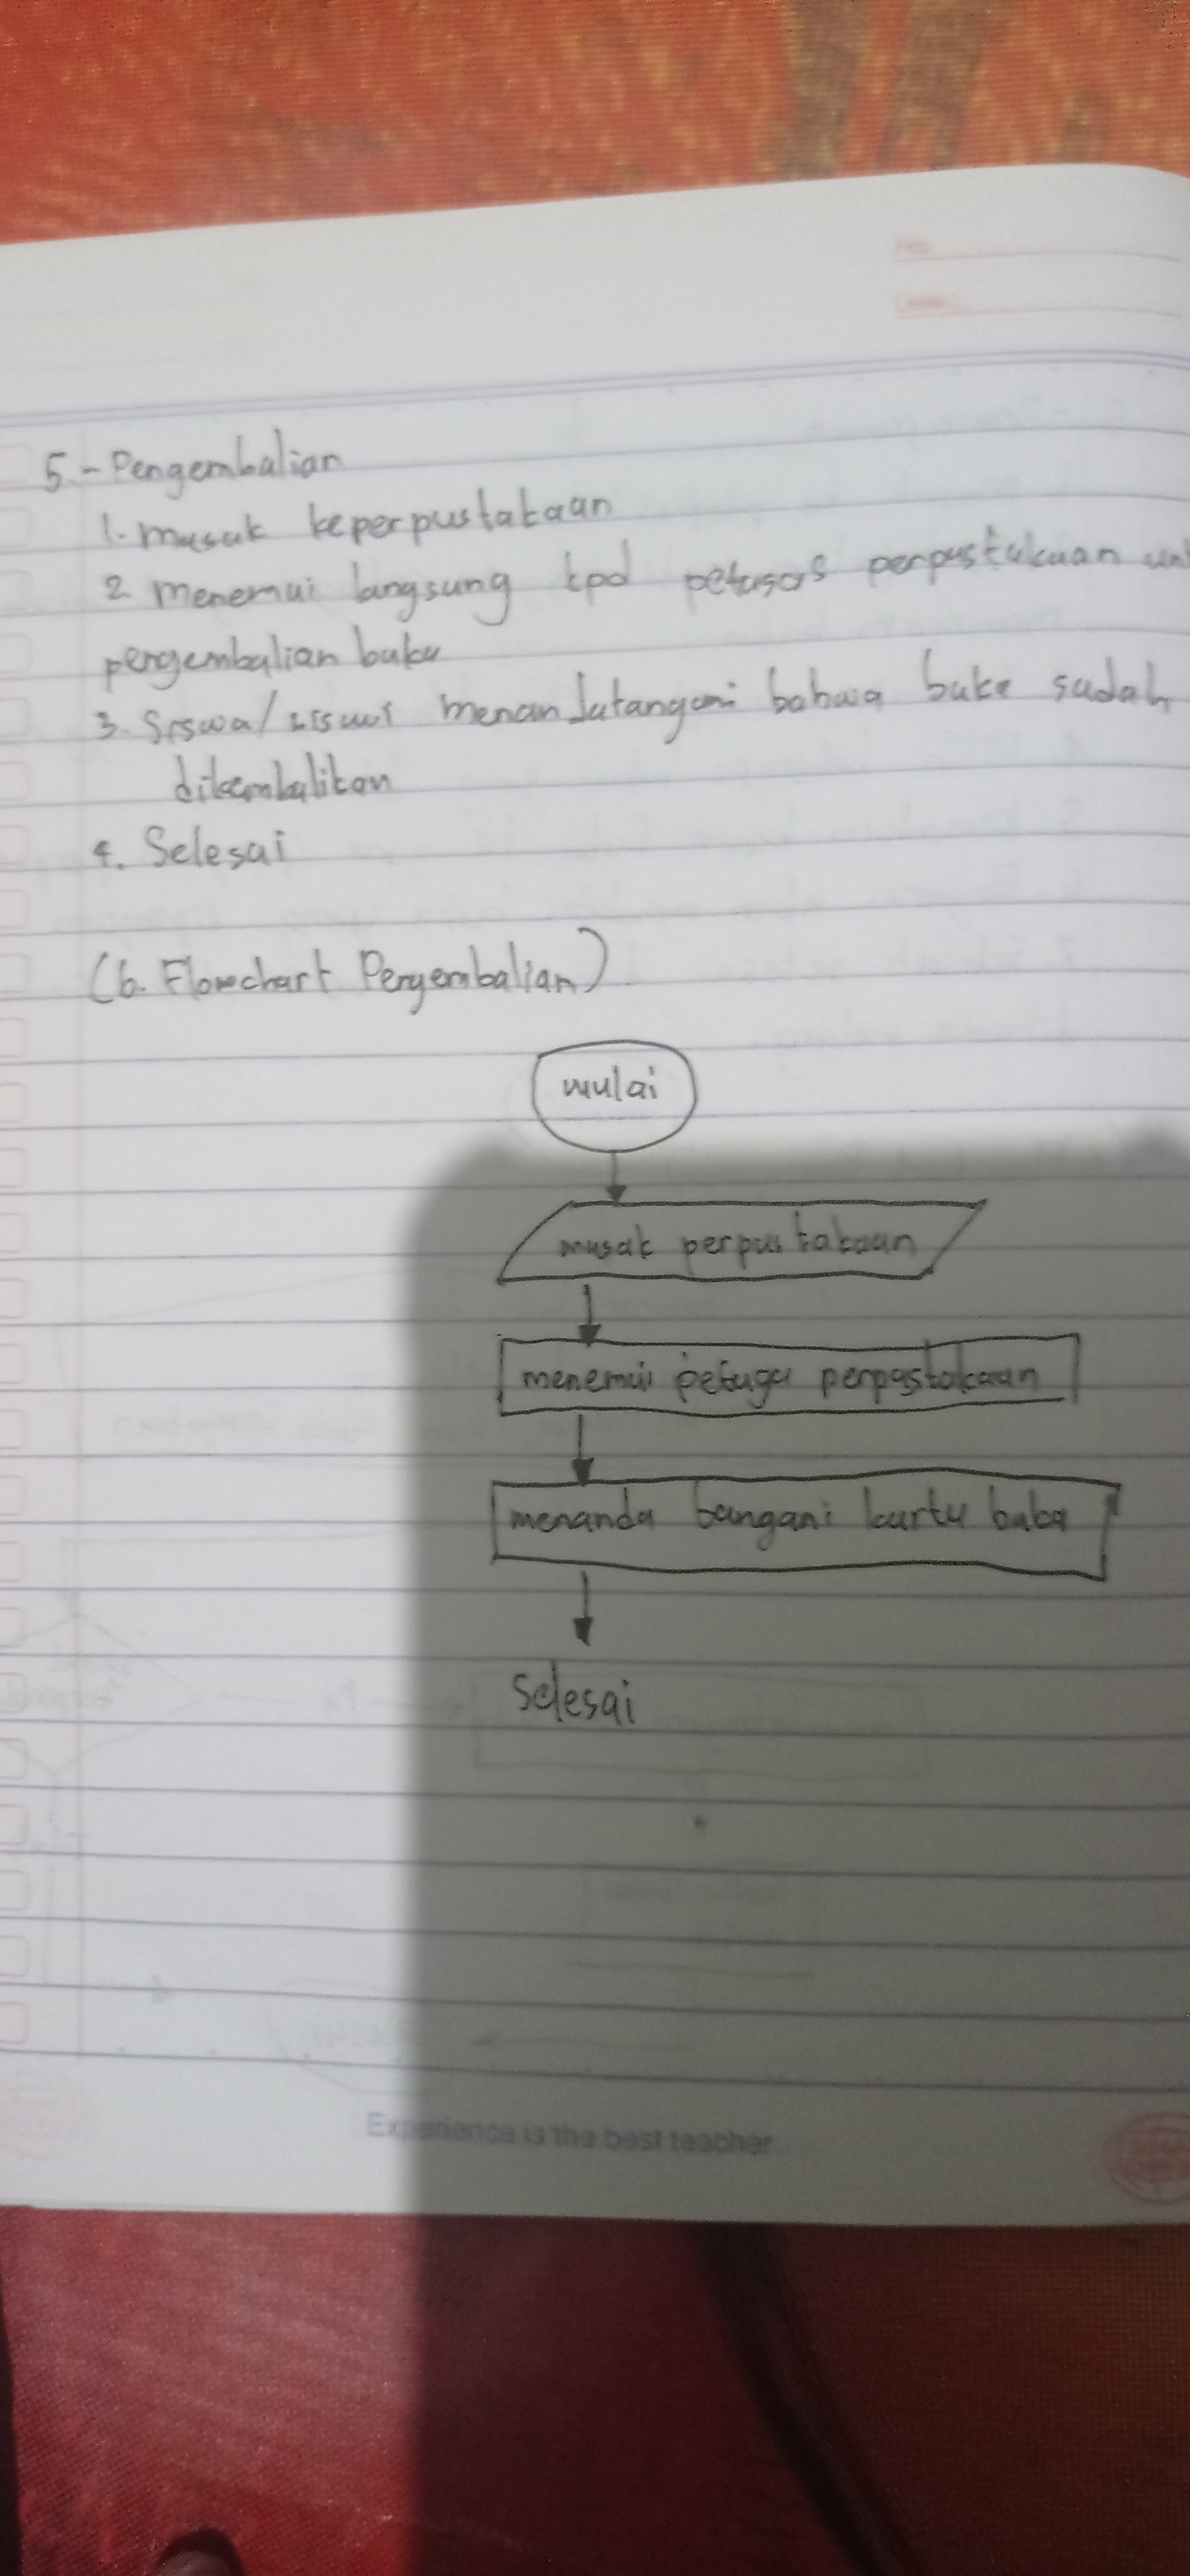 5.- Pengembalian
1. masuk keperpustakaan
2 menemui langsung kpd petugas perpustakaan un
pengembalian buku
3. Siswa/siswi menandatangani bahwa buku sudah
dikembalikan
4. Selesai
(6. Flowchart Pengembalian)
mulai
masuk perpustakaan
menemui petuga perpustakaan
menanda tangani kartu buku
Selesai
Experience is the best teacher